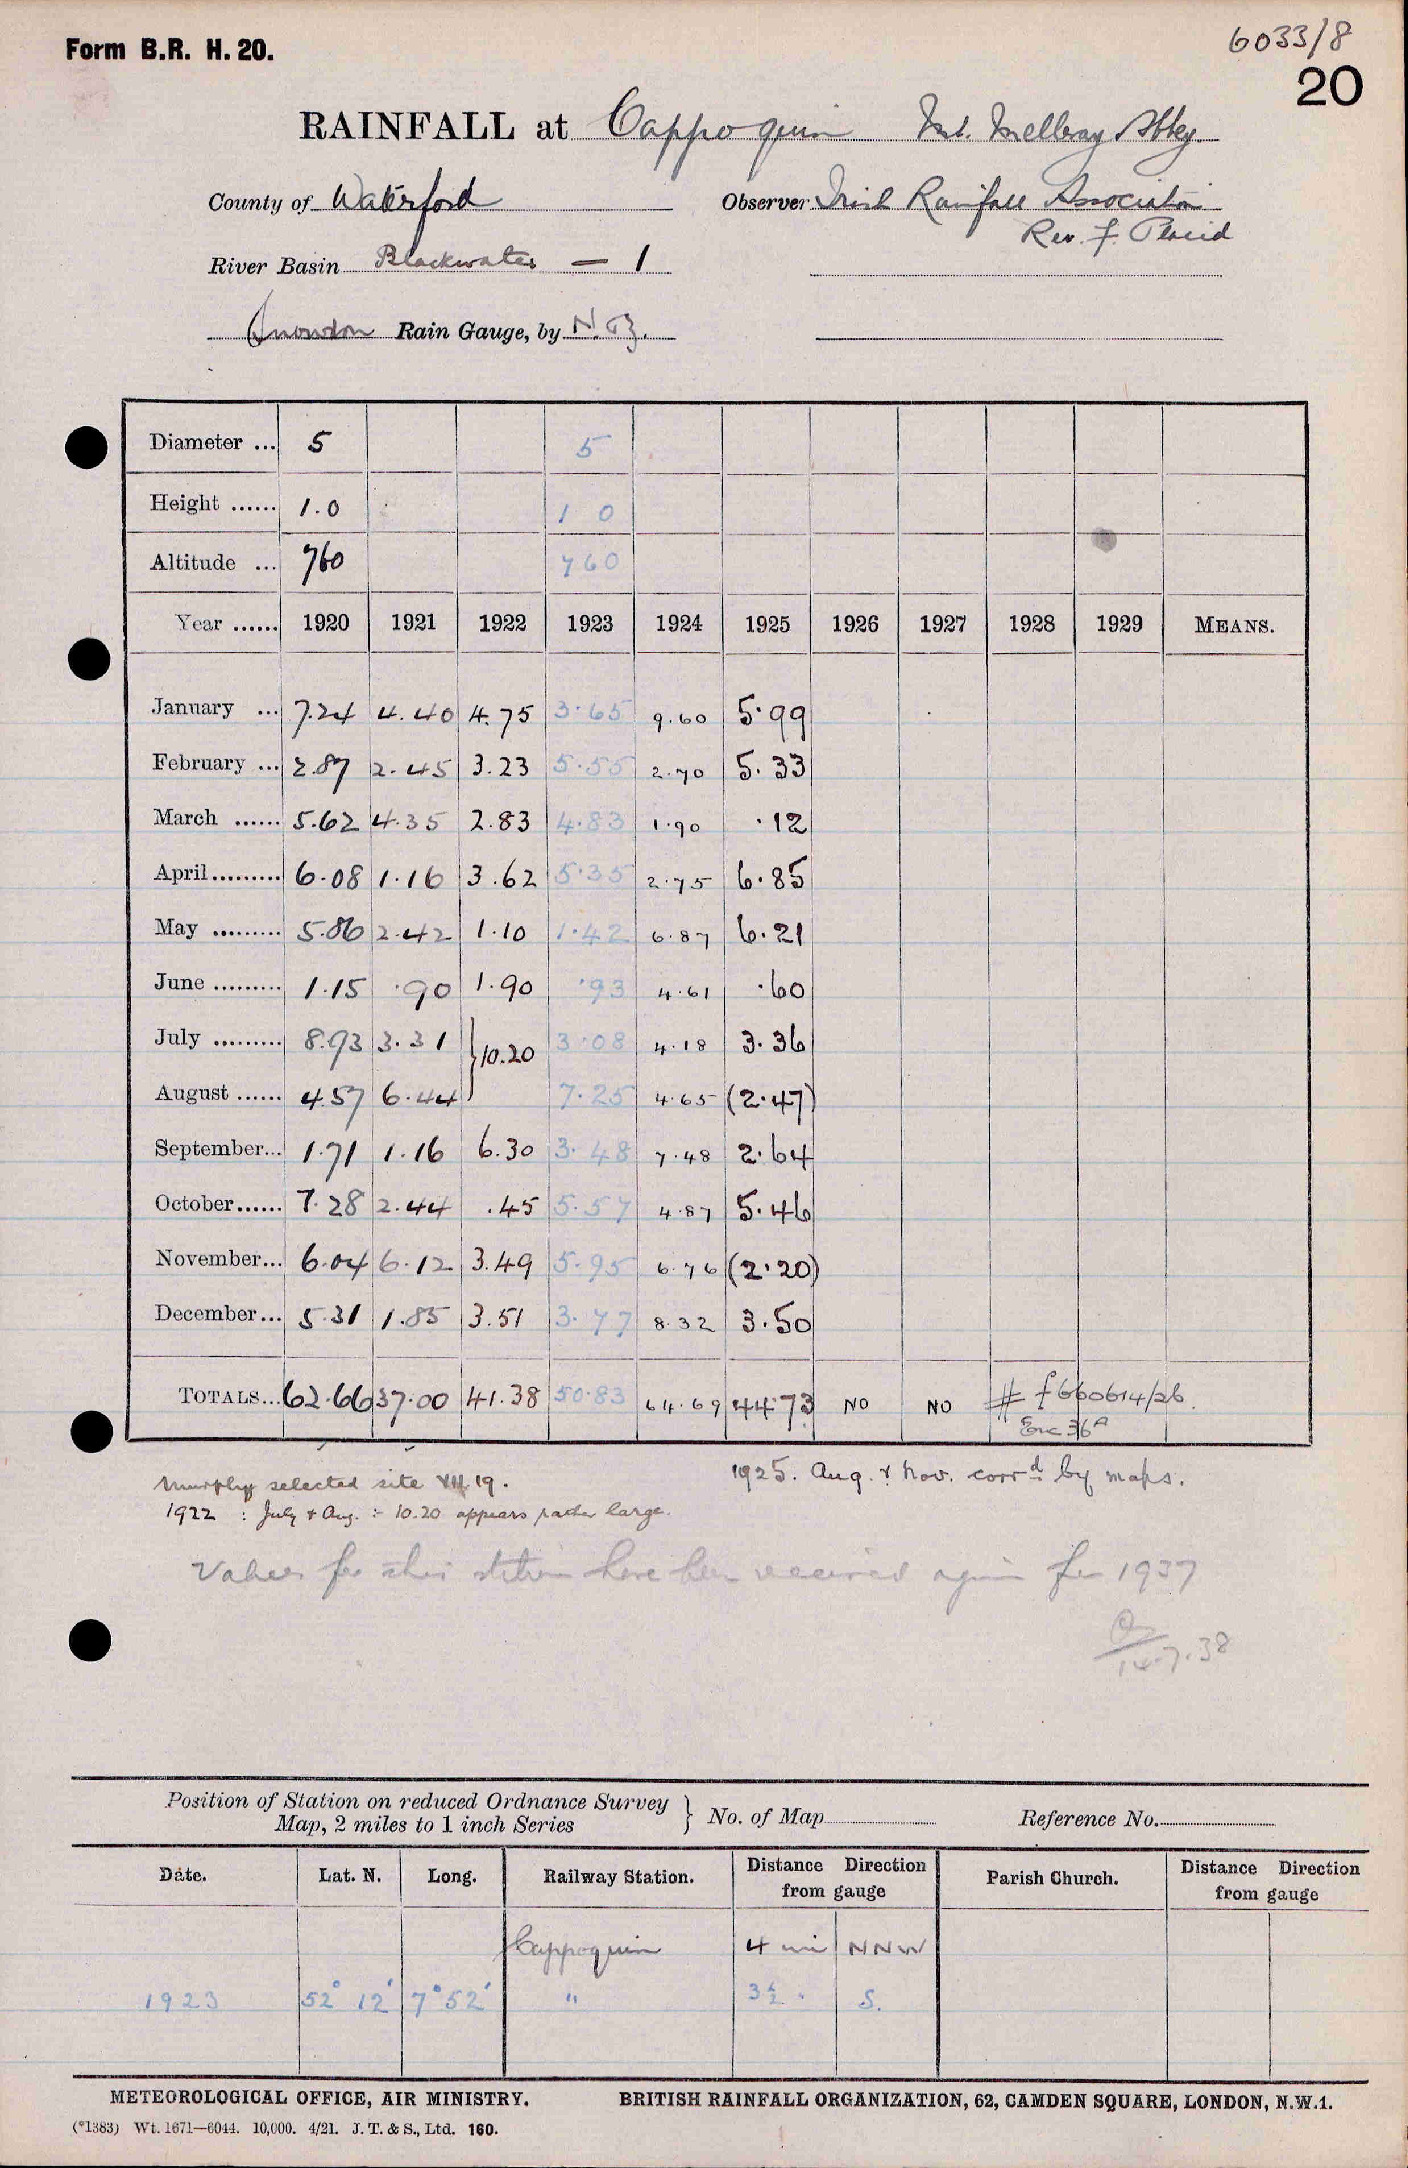 6033/8
Form B.R. H. 20.
20
RAINFALL at Cappoquin Mt. Melleray Abbey
County of Waterford Observer Irish Rainfall Association
Rev. F. Placid
River Basin Blackwater — 1
Snowdon Rain Gauge, by N.Z.
Diameter ... 5 5
Height ...... 1.0 1 0
Altitude ... 760 760
Year ...... 1920 1921 1922 1923 1924 1925 1926 1927 1928 1929 MEANS.
January ... 7.24 4.40 4.75 3.65 9.60 5.99
February ... 2.87 2.45 3.23 5.55 2.70 5.33
March ...... 5.62 4.35 2.83 4.83 1.90 .12
April ......... 6.08 1.16 3.62 5.35 2.75 6.85
May ......... 5.86 2.42 1.10 1.42 6.87 6.21
June ......... 1.15 .90 1.90 .93 4.61 .60
July ......... 8.93 3.31 } 10.20 3.08 4.18 3.36
August ...... 4.57 6.44 7.25 4.65 (2.47)
September... 1.71 1.16 6.30 3.48 7.48 2.64
October...... 7.28 2.44 .45 5.57 4.87 5.46
November... 6.04 6.12 3.49 5.95 6.76 (2.20)
December... 5.31 1.85 3.51 3.77 8.32 3.50
TOTALS... 62.66 37.00 41.38 50.83 64.69 44.73 NO NO # f 660614/26.
Enc 36A
1925. Aug. & Nov. corrd. by maps.
Murphy selected site VII.19.
1922 : July & Aug. :- 10.20 appears rather large.
Values for this station have been received again for 1937
14.7.38
Position of Station on reduced Ordnance Survey
Map, 2 miles to 1 inch Series } No. of Map Reference No.
Date. Lat. N. Long. Railway Station. Distance Direction from gauge Parish Church. Distance Direction from gauge
Cappoquin 4 mi NNW
1923 52° 12' 7° 52' " 3½ . S.
METEOROLOGICAL OFFICE, AIR MINISTRY. BRITISH RAINFALL ORGANIZATION, 62, CAMDEN SQUARE, LONDON, N.W.1.
(*1383) Wt. 1671—6044. 10,000. 4/21. J. T. & S., Ltd. 160.